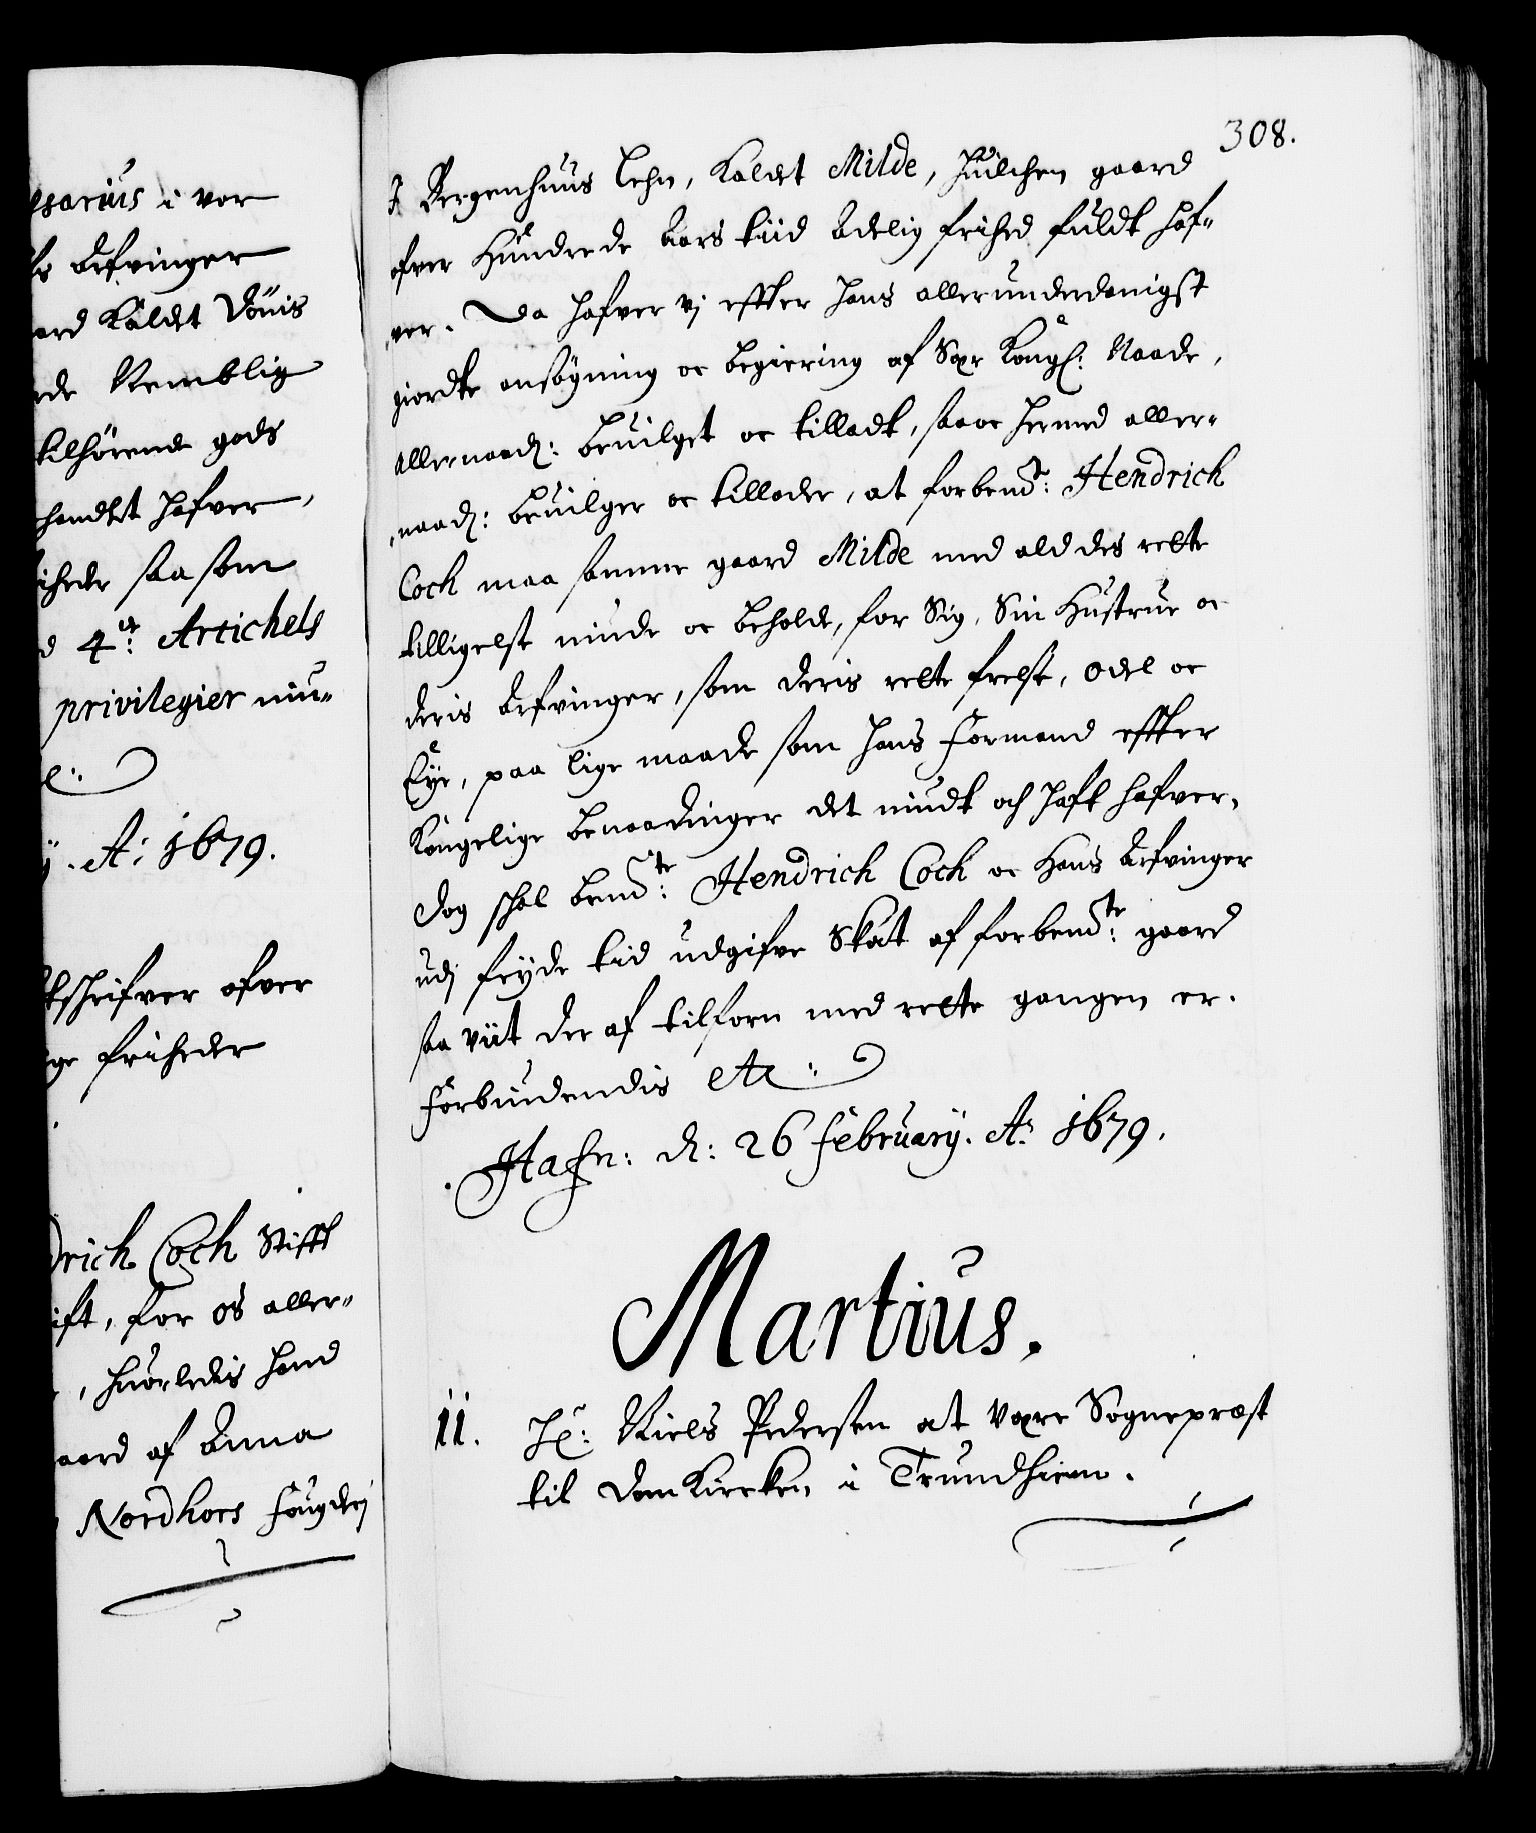 esarius i vor
Arfvinger
ord Kaldt Döuis
rde Nemblig
tilhörende gods
handlet hafver,
iheder saa som
d 4de: Artichels
privilegier niu=
e:
ÿ. Ao: 1679.
schrifver ofver
ge friheder
drich Coch Stifft
ift, for os aller=
, huorledis hand
aard af Anna
Nordhors fougderj
308.
I Bergenhuus Lehn, Kaldet Milde, huilchen gaard
ofver Hundrede Aars tiid Adelig frihed fuldt haf=
ver. Da hafver vj effter hans allerunderdanigst
giordte ansögning oc begiering af Sær Kongl: Naade,
allernaad: beuilget oc tilladt, saa oc hermed aller=
naad: beuilger oc tillader, at forbemte: Hendrich
Coch maa samme gaard Milde med ald des rette
tilligelse niude oc beholde, for Sig, Sin Hustrue oc
deris Arfvinger, som deris rette frelse, Odel oc
Eye, paa lige maade som hans Formand effter
Kongelige benaadinger det niudt och haft hafver,
Dog schal bemte: Hendrich Coch oc Hans Arfvinger
udj feÿde tid udgifve Skat af forbemte: gaard
saa viit der af tilforn med rette gangen er.
Forbiudendis etc:
Hafn: d: 26 february. Ao 1679.
Martius.
11. Hr: Niels Pedersen at være Sognepræst
til Dom Kircken i Trundhiem.